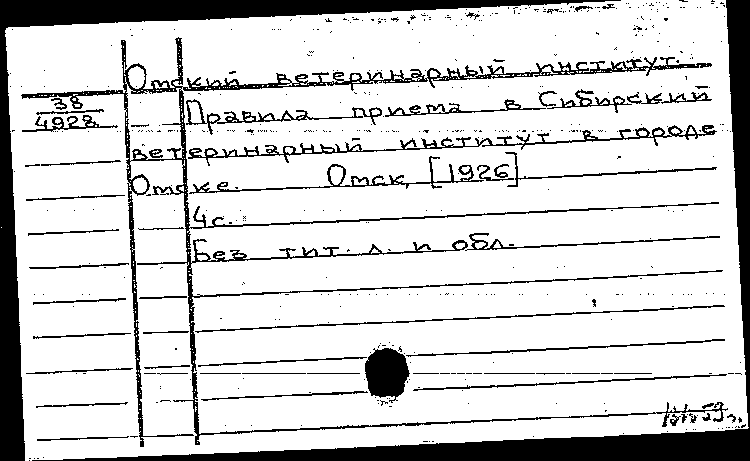 Омский ветеринарный институт.
38
4928
Правила приема в Сибирский
ветеринарный институт в городе
Омске. Омск, [1926].
4с.
Без тит. л. и обл.